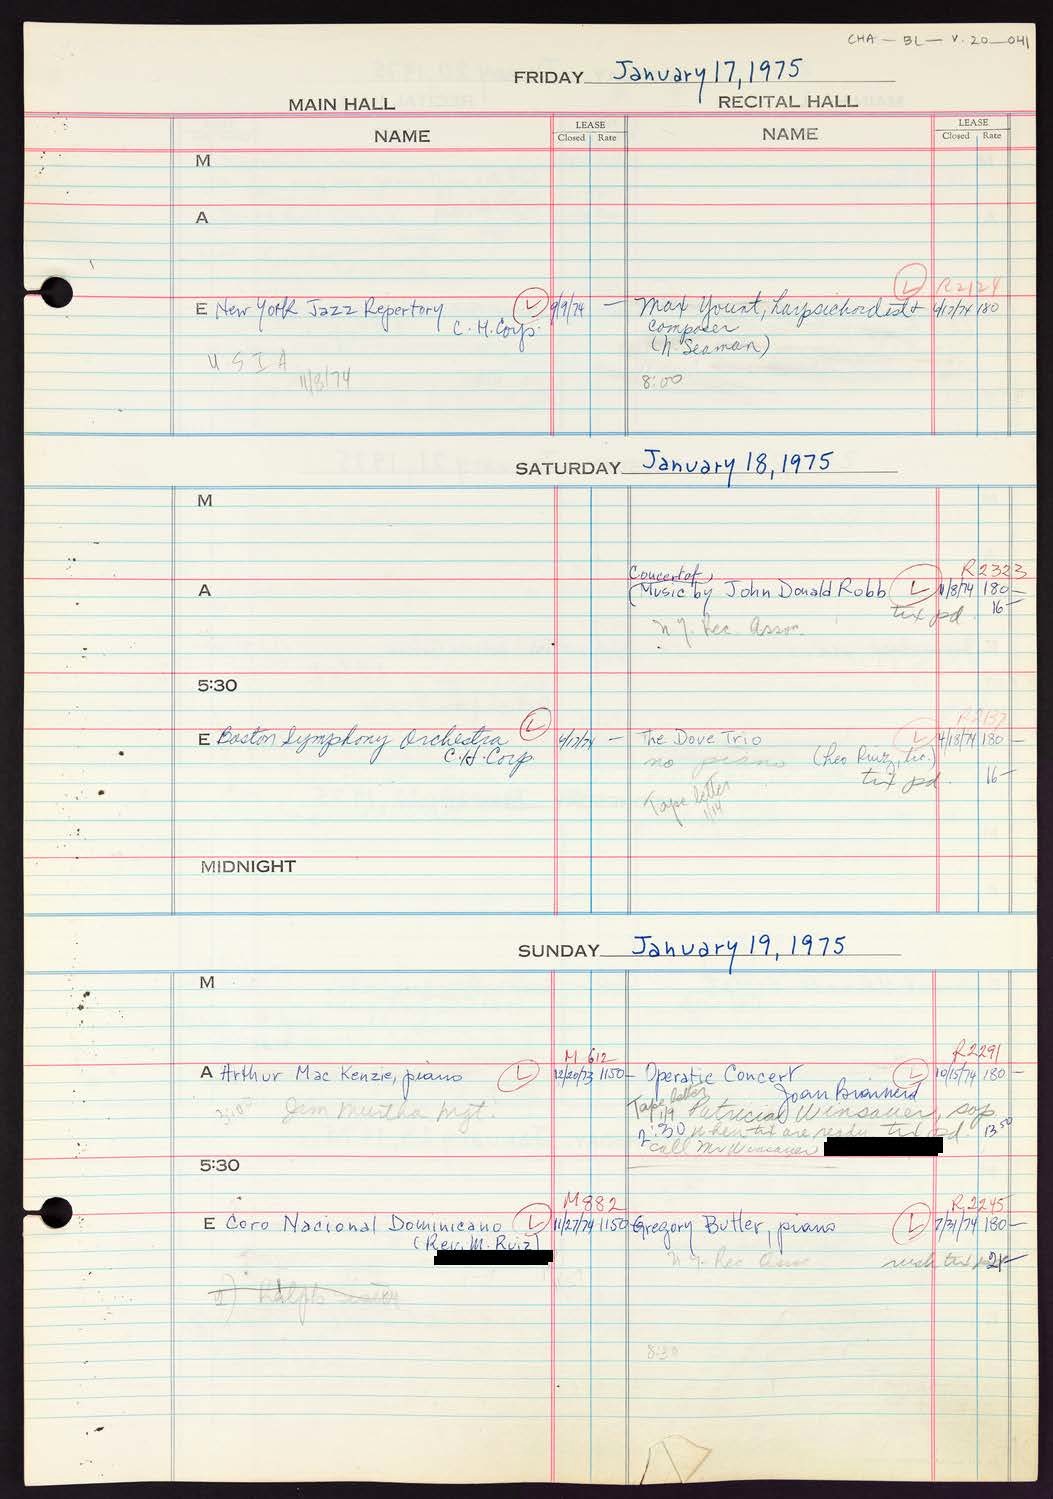 CHA - BL - V. 20_041
FRIDAY January 17, 1975
MAIN HALL RECITAL HALL
NAME LEASE Closed Rate NAME LEASE Closed Rate
M
A
R2124
E New York Jazz Repertory L 9/9/74 — Max Yount, harpsichordist + L 4/17/74 180
C. H. Corp. composer
(N. Seaman)
U S I A
11/8/74
8:00
SATURDAY January 18, 1975
M
Concert of R2323
A (Music by John Donald Robb L 11/8/74 180—
tix pd. 16—
N.Y. Rec. Assoc.
5:30
R2137
E Boston Symphony Orchestra L 4/17/74 — The Dove Trio L 4/18/74 180—
C. H. Corp. no piano (Leo Ruiz, Inc.)
tix pd. 16—
Tape letter
1/14
MIDNIGHT
SUNDAY January 19, 1975
M
M 612 R2291
A Arthur Mac Kenzie, piano L 12/20/73 1150— Operatic Concert L 10/15/74 180—
Joan Brainerd
Jim Murtha Mgt. Tape letter 1/9 Patricia Winsauer, sop
2:30 when tix are ready tix pd. 13 50
call Mr Winsauer
5:30
M882 R2245
E Coro Nacional Dominicano L 11/27/74 1150— Gregory Butler, piano L 7/31/74 180—
(Rev. M. Ruiz)
N.Y. Rec Assoc rush tix
2) Ralph
8:30